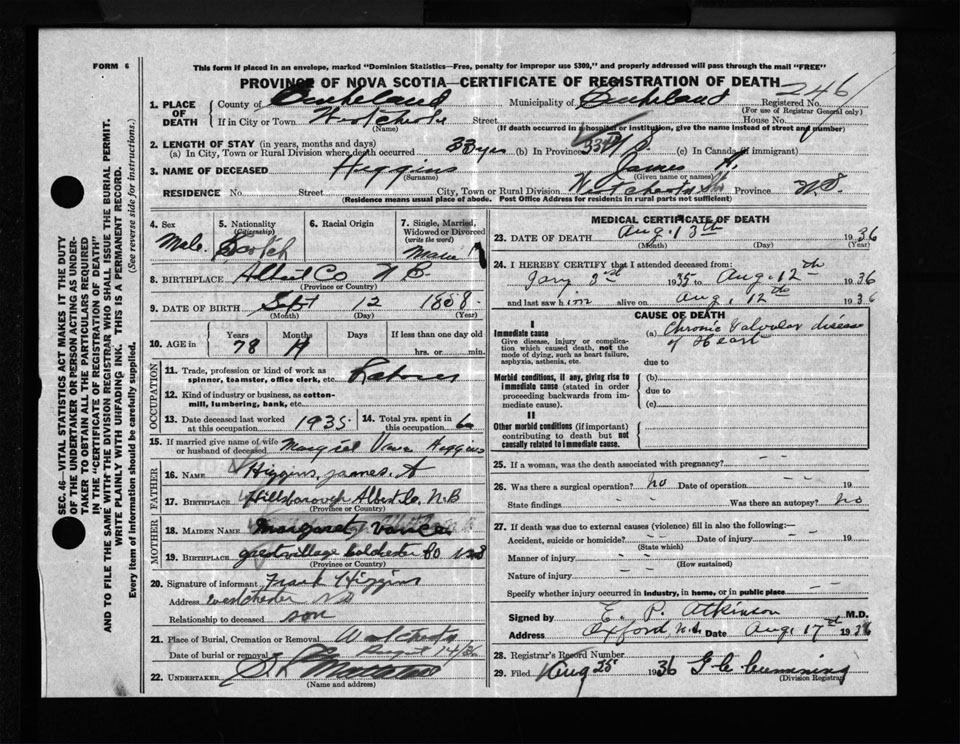 FORM 6
This form if placed in an envelope, marked "Dominion Statistics—Free, penalty for improper use $300," and properly addressed will pass through the mail "FREE"
PROVINCE OF NOVA SCOTIA—CERTIFICATE OF REGISTRATION OF DEATH
246
1. PLACE OF DEATH { County of Cumberland Municipality of Cumberland Registered No.
(For use of Registrar General only)
If in City or Town Westchester Street House No.
(Name) (If death occurred in a hospital or institution, give the name instead of street and number)
2. LENGTH OF STAY (in years, months and days)
(a) In City, Town or Rural Division where death occurred 33 yrs (b) In Province (c) In Canada (if immigrant)
3. NAME OF DECEASED Higgins James A.
(Surname) (Given name or names)
RESIDENCE No. Street City, Town or Rural Division Province N.S.
(Residence means usual place of abode. Post Office Address for residents in rural parts not sufficient)
4. Sex Male
5. Nationality (Citizenship) Scotch
6. Racial Origin
7. Single, Married, Widowed or Divorced (write the word)
8. BIRTHPLACE Albert Co N B
(Province or Country)
9. DATE OF BIRTH Sept 12 1858
(Month) (Day) (Year)
10. AGE in { Years Months Days If less than one day old
78 hrs. or min.
OCCUPATION
11. Trade, profession or kind of work as spinner, teamster, office clerk, etc. Laborer
12. Kind of industry or business, as cotton-mill, lumbering, bank, etc.
13. Date deceased last worked at this occupation 1935. 14. Total yrs. spent in this occupation 60
15. If married give name of wife or husband of deceased Higgins
FATHER
16. NAME Higgins, James A
17. BIRTHPLACE Hillsborough Albert Co. N.B
(Province or Country)
MOTHER
18. MAIDEN NAME Margaret Vance
19. BIRTHPLACE greatvillage Colchester CO NS
(Province or Country)
20. Signature of informant Frank Higgins
Address westchester NS
Relationship to deceased son
21. Place of Burial, Cremation or Removal Westchester
Date of burial or removal August 14/36
22. UNDERTAKER
(Name and address)
MEDICAL CERTIFICATE OF DEATH
23. DATE OF DEATH Aug, 13th 1936
(Month) (Day) (Year)
24. I HEREBY CERTIFY that I attended deceased from:
Jany 3rd 1935 to Aug. 12th 1936
and last saw him alive on Aug, 12th 1936
CAUSE OF DEATH
I
Immediate cause
Give disease, injury or complication which caused death, not the mode of dying, such as heart failure, asphyxia, asthenia, etc.
(a) Chronic Valvular disease of Heart
due to
Morbid conditions, if any, giving rise to immediate cause (stated in order proceeding backwards from immediate cause).
(b)
due to
(c)
II
Other morbid conditions (if important) contributing to death but not causally related to immediate cause.
25. If a woman, was the death associated with pregnancy? - -
26. Was there a surgical operation? no Date of operation - - 19
State findings - - Was there an autopsy? no
27. If death was due to external causes (violence) fill in also the following:—
Accident, suicide or homicide? - - Date of injury - - 19
(State which)
Manner of injury - -
(How sustained)
Nature of injury - -
Specify whether injury occurred in industry, in home, or in public place - -
Signed by E. P. Atkinson M.D.
Address Oxford N.S. Date Aug, 17th 1936
28. Registrar's Record Number
29. Filed Aug 25 1936 G. C. Cumming
(Division Registrar)
SEC. 46—VITAL STATISTICS ACT MAKES IT THE DUTY
OF THE UNDERTAKER OR PERSON ACTING AS UNDER-
TAKER TO OBTAIN ALL THE PARTICULARS REQUIRED
IN THE "CERTIFICATE OF REGISTRATION OF DEATH"
AND TO FILE THE SAME WITH THE DIVISION REGISTRAR WHO SHALL ISSUE THE BURIAL PERMIT.
WRITE PLAINLY WITH UNFADING INK. THIS IS A PERMANENT RECORD.
Every item of information should be carefully supplied. (See reverse side for instructions.)